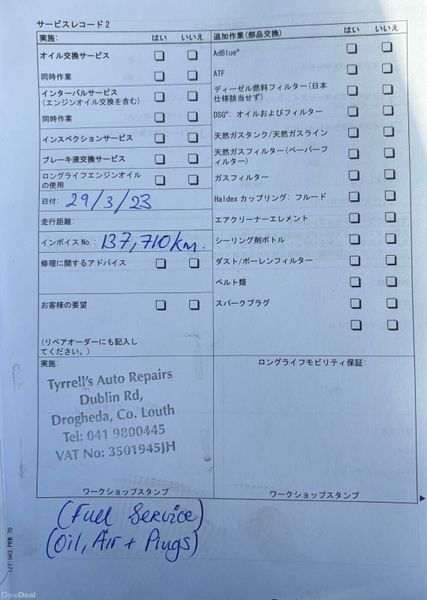 サービスレコード 2
実施: はい いいえ
オイル交換サービス
同時作業
インターバルサービス
(エンジンオイル交換を含む)
同時作業
インスペクションサービス
ブレーキ液交換サービス
ロングライフエンジンオイル
の使用
日付: 29/3/23
走行距離:
インボイス No.: 137,710km.
修理に関するアドバイス
お客様の要望
(リペアオーダーにも記入し
てください。)
追加作業(部品交換) はい いいえ
AdBlue®
ATF
ディーゼル燃料フィルター(日本
仕様該当せず)
DSG® オイルおよびフィルター
天然ガスタンク/天然ガスライン
天然ガスフィルター(ペーパーフ
ィルター)
ガスフィルター
Haldex カップリング: フルード
エアクリーナーエレメント
シーリング剤ボトル
ダスト/ポーレンフィルター
ベルト類
スパークプラグ
実施:
Tyrrell's Auto Repairs
Dublin Rd,
Drogheda, Co. Louth
Tel: 041 9800445
VAT No: 3501945JH
ワークショップスタンプ
ロングライフモビリティ保証:
ワークショップスタンプ
(Full Service)
(Oil, Air + Plugs)
DoneDeal